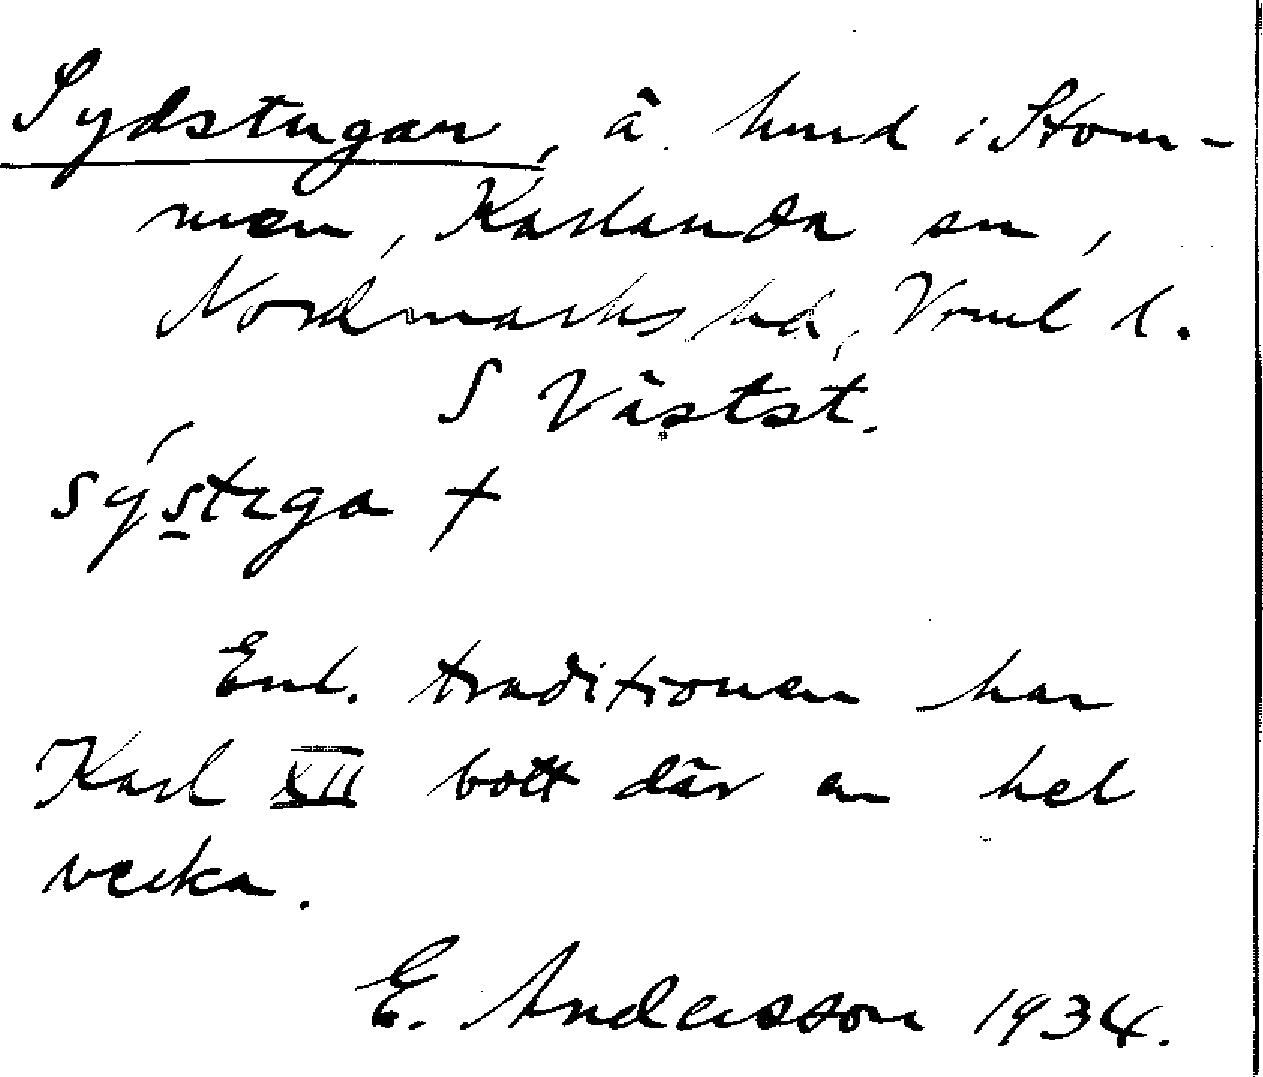 Sydstugan, å hmd i Stom-
men, Karlanda sn,
Nordmarks hd, Vrml l.
S Västst.
sýstuga +
Enl. traditionen har
Karl XII bott där en hel
vecka.
E. Andersson 1934.